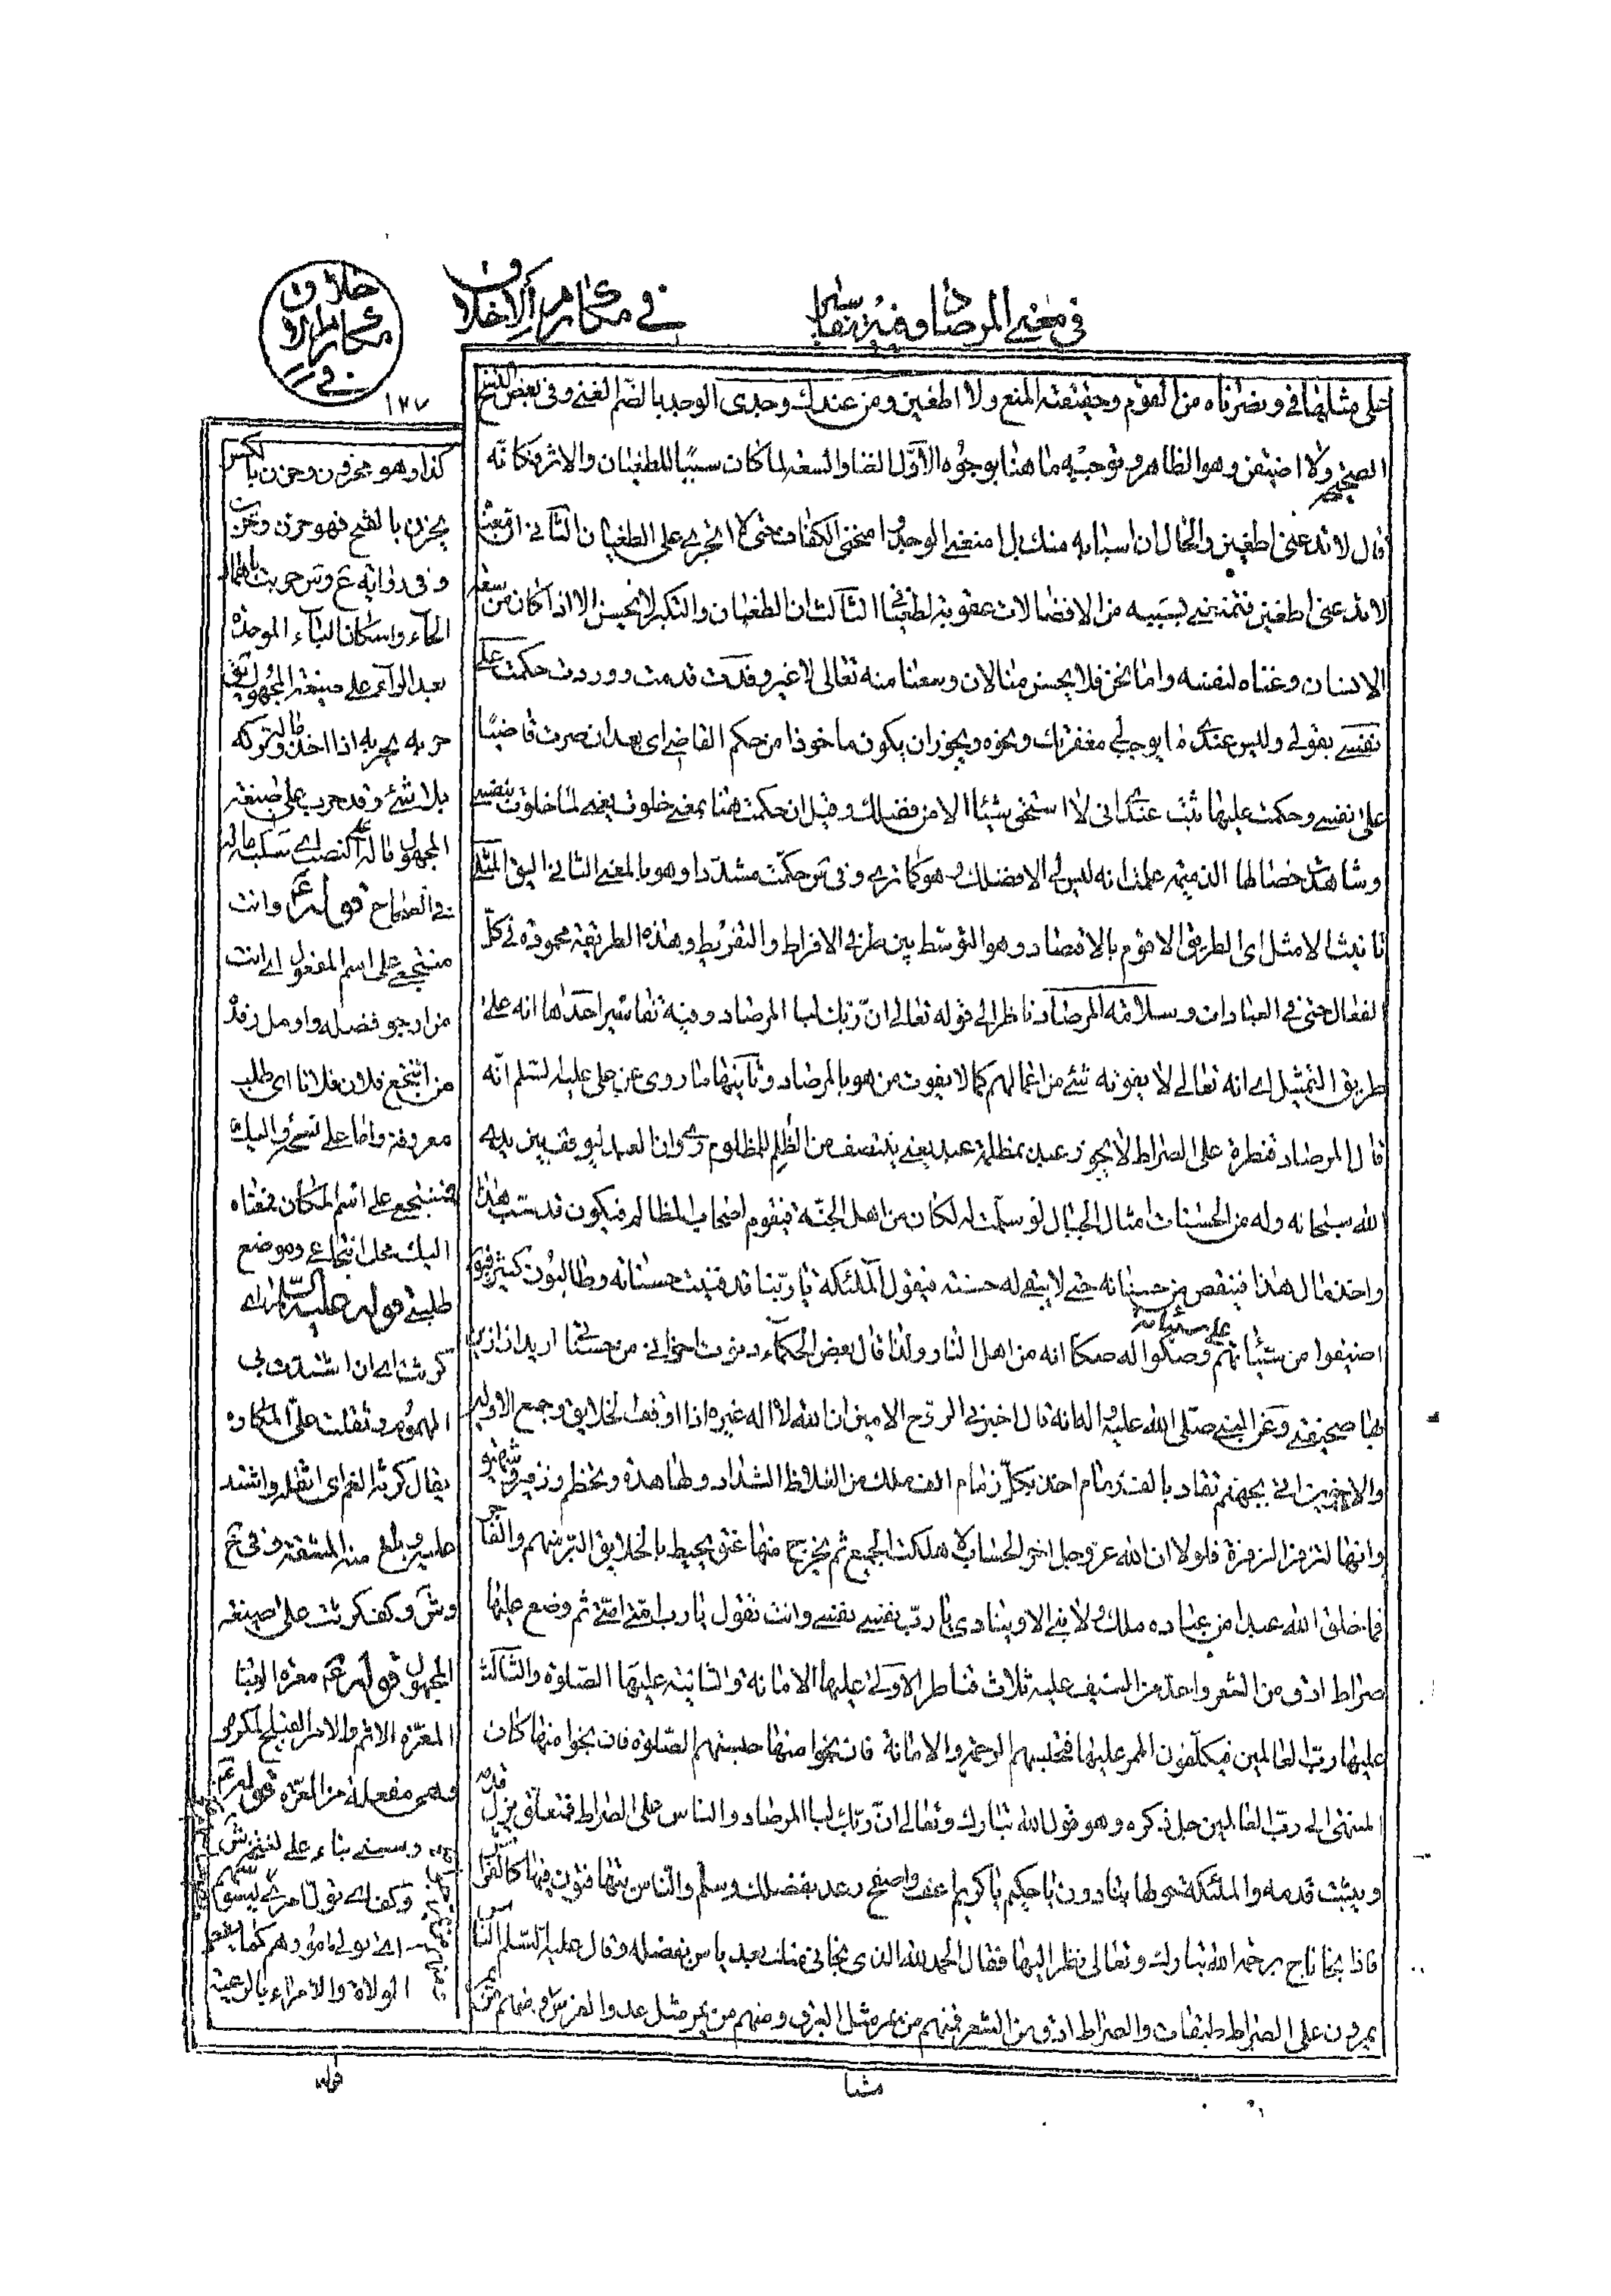 في معنى المرصاد وفيه تفاسير
في مكارم الاخلاق
في مكارم الاخلاق
١٧٧
على مثلها في ونصرناه من القوم وحقيقته المنع ولا اطغين ومن عندك وجدى الوجد بالضم الغنى وفي بعض النسخ
الصحيحة ولا اضيقن وهو الظاهر وتوجيه ما هنا بوجوه الاول الغنا والسعة لما كان سببا للطغيان والاشر فكانه
قال لا تدعنى اطغين والحال ان اسبابه منك بل امنعنى الوجد وامنحنى الكفاف حتى لا اتجرى على الطغيان الثاني
لا تدعنى اطغين فتمنعنى بسببه من الافضالات عقوبة لطغياني الثالث ان الطغيان والتكبر لا يحسن الا اذا كان من سعة
الانسان وغناه لنفسه واما نحن فلا يحسن منا لان وسعنا منه تعالى لا غير وفدت قدمت ووردت حكمت على
نفسي بقولي وليس عندي ما يوجب لي مغفرتك ونحوه ويجوز ان يكون ماخوذا من حكم القاضي اى بعد ان صرت قاضيا
على نفسي وحكمت عليها ثبت عندي اني لا استحق شيئا الا من فضلك وقيل ان حكمت هنا بمعنى خلوت يعني لما خلوت بنفسي
وشاهدت خصالها الذميمة علمت انه ليس لي الا فضلك وهو كما ترى وفي س حكمت مشددا وهو بالمعنى الثاني اليق المثلى
تانيث الامثل اى الطريق الاقوم بالاقتصاد وهو التوسط بين طرفى الافراط والتفريط وهذه الطريقة محمودة في كل
الفعال حتى في العبادات وسلامة المرصاد ناظر الى قوله تعالى ان ربك لبا المرصاد وفيه تفاسير احدها انه على
طريق التمثيل اى انه تعالى لا يفوته شئ من اعمالهم كما لا يفوت من هو بالمرصاد وثانيها ما روى عن علي عليه السلم انه
قال المرصاد قنطرة على الصراط لا يجوز عبد بمظلمة عبد يعنى ينتصف من الظالم للمظلوم وروى ان العبد ليوقف بين يدى
الله سبحانه وله من الحسنات امثال الجبال لو سلمت له لكان من اهل الجنة فيقوم اصحاب المظالم فيكون قد سب هذا
واخذ مال هذا فينقص من حسناته حتى لا يبقى له حسنة فيقول الملئكة يا ربنا قد فنيت حسناته وطالبون كثير فيقول
اضيفوا من سيئاتهم على سيئاته وصكوا له صكا انه من اهل النار ولذا قال بعض الحكماء
بها صحيفتي وعن النبي صلى الله عليه واله انه قال اخبرني الروح الامين ان الله لا اله غيره اذا اوقف الخلايق وجمع الاولين
والاخرين اتى بجهنم تقاد بالف زمام اخذ بكل زمام الف ملك من الغلاظ الشداد ولها هدة وتحطم وزفير وشهيق
وانها لتزفر الزفرة فلولا ان الله عز وجل اخر الحساب لاهلكت الجميع ثم يخرج منها عنق يحيط بالخلايق البر منهم والفاجر
فما خلق الله عبدا من عباده ملك ولا نبي الا وينادى يا رب نفسي نفسي وانت تقول يا رب امتي امتي ثم وضع عليها
صراط ادق من الشعر واحد من السيف عليه ثلاث قناطر الاولى عليها الامانة والثانية عليها الصلوة والثالث
عليها رب العالمين فيكلفون الممر عليها فتحبسهم الرحمة والامانة فان نجوا منها حبستهم الصلوة فان نجوا منها كان
المنتهى الى رب العالمين جل ذكره وهو قول الله تبارك وتعالى ان ربك لبا المرصاد والناس على الصراط فمتعلق يزل قدمه
ويثبت قدمه والملئكة حولها ينادون يا حليم يا كريم اعف واصفح وعد بفضلك وسلم والناس يتهافتون فيها كالفراش
فاذا نجا ناج برحمة الله تبارك وتعالى نظر اليها فقال الحمد لله الذى نجاني منك بعد ياس بفضله وقال عليه السلم الناس
يمرون على الصراط طبقات والصراط ادق من الشعر فمنهم من يمر مثل البرق ومنهم من يمر مثل عدو الفرس ومنهم من
مشيا
كذا وهو محزون وحزن بالكسر
يحزن بالفتح فهو حزن وحزين
وفي رواية ع وس حربت باهمال
الحاء واسكان الباء الموحدة
بعد الراء على صيغة المجهول
حربه يحربه اذا اخذ ماله وتركه
بلا شئ وقد حرب على صيغة
المجهول ماله اى سلب ماله
في الصحاح قوله ع وانت
منتجعي على اسم المفعول اى انت
من ارجو فضله واومل رفده
من انتجع فلان فلانا اى طلب
معروفه واما على نسخة واليك
منتجعي على اسم المكان فمعناه
اليك محل انتجاعى وموضع
طلبتي قوله عليه السلم ان
كرثت اى ان اشتدت بى
الهموم وثقلت على المكاره
يقال كرثه الغم اى اثقله واشتد
عليه وبلغ منه المشقة وفى خ
وس وكف كرثت على صيغة
المجهول قوله ع معرة العباد
المعرة الاثم والامر القبيح المكروه
وهى مفعلة من العر قوله ع
الولاة والامراء بالرعية
قوله